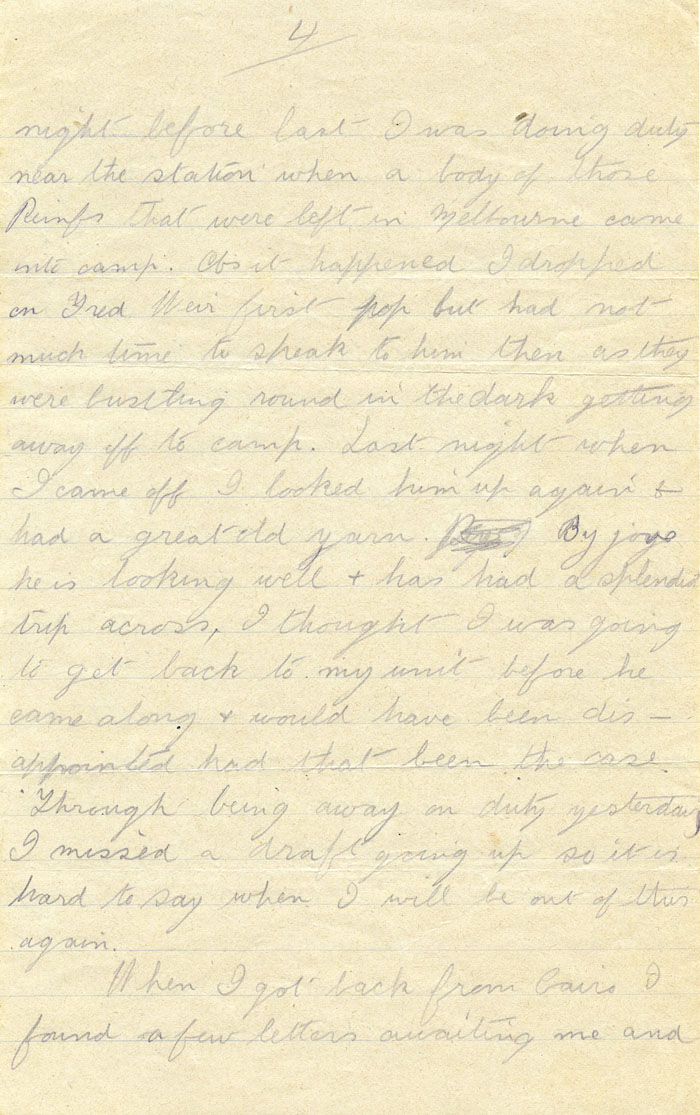 4
night before last I was doing duty
near the station when a body of those
Reinfs that were left in Melbourne came
into camp. As it happened I dropped
on Fred Weir first pop but had not
much time to speak to him then as they
were bustling round in the dark getting
away off to camp. Last night when
I came off I looked him up again &
had a great old yarn. By jove
he is looking well + has had a splendid
trip across, I thought I was going
to get back to my unit before he
came along + would have been dis-
appointed had that been the case.
Through being away on duty yesterday
I missed a draft going up so it is
hard to say when I will be out of this
again.
When I got back from Cairo I
found a few letters awaiting me and